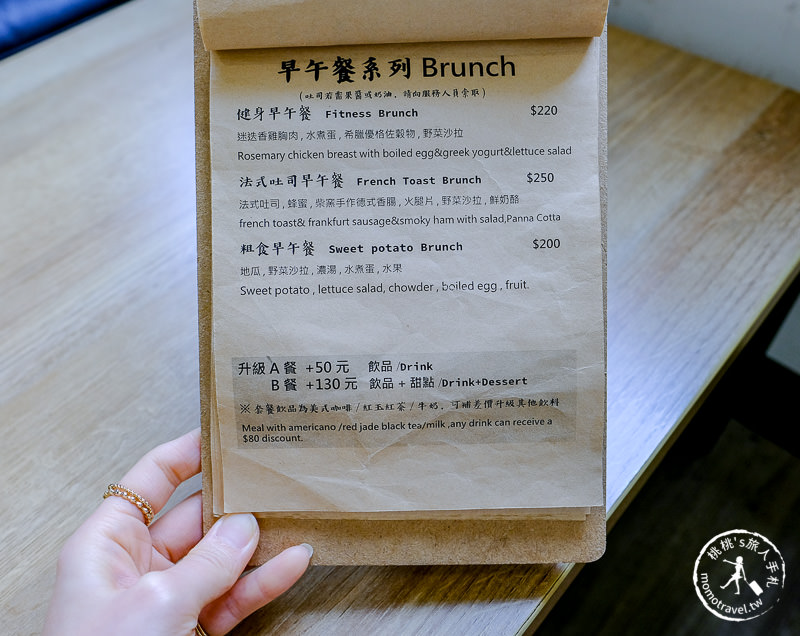 早午餐系列 Brunch
(吐司若需果醬或奶油，請向服務人員拿取)
健身早午餐 Fitness Brunch $220
迷迭香雞胸肉 , 水煮蛋 , 希臘優格佐穀物 , 野菜沙拉
Rosemary chicken breast with boiled egg&greek yogurt&lettuce salad
法式吐司早午餐 French Toast Brunch $250
法式吐司 , 蜂蜜 , 柴窯手作德式香腸 , 火腿片 , 野菜沙拉 , 鮮奶酪
french toast& frankfurt sausage&smoky ham with salad,Panna Cotta
粗食早午餐 Sweet potato Brunch $200
地瓜 , 野菜沙拉 , 濃湯 , 水煮蛋 , 水果
Sweet potato , lettuce salad, chowder , boiled egg , fruit.
升級 A 餐 +50 元 飲品 /Drink
B 餐 +130 元 飲品 + 甜點 /Drink+Dessert
※ 套餐飲品為美式咖啡 / 紅玉紅茶 / 牛奶，可補差價升級其他飲料
Meal with americano /red jade black tea/milk ,any drink can receive a
$80 discount.
桃桃's旅人手札
momotravel.tw